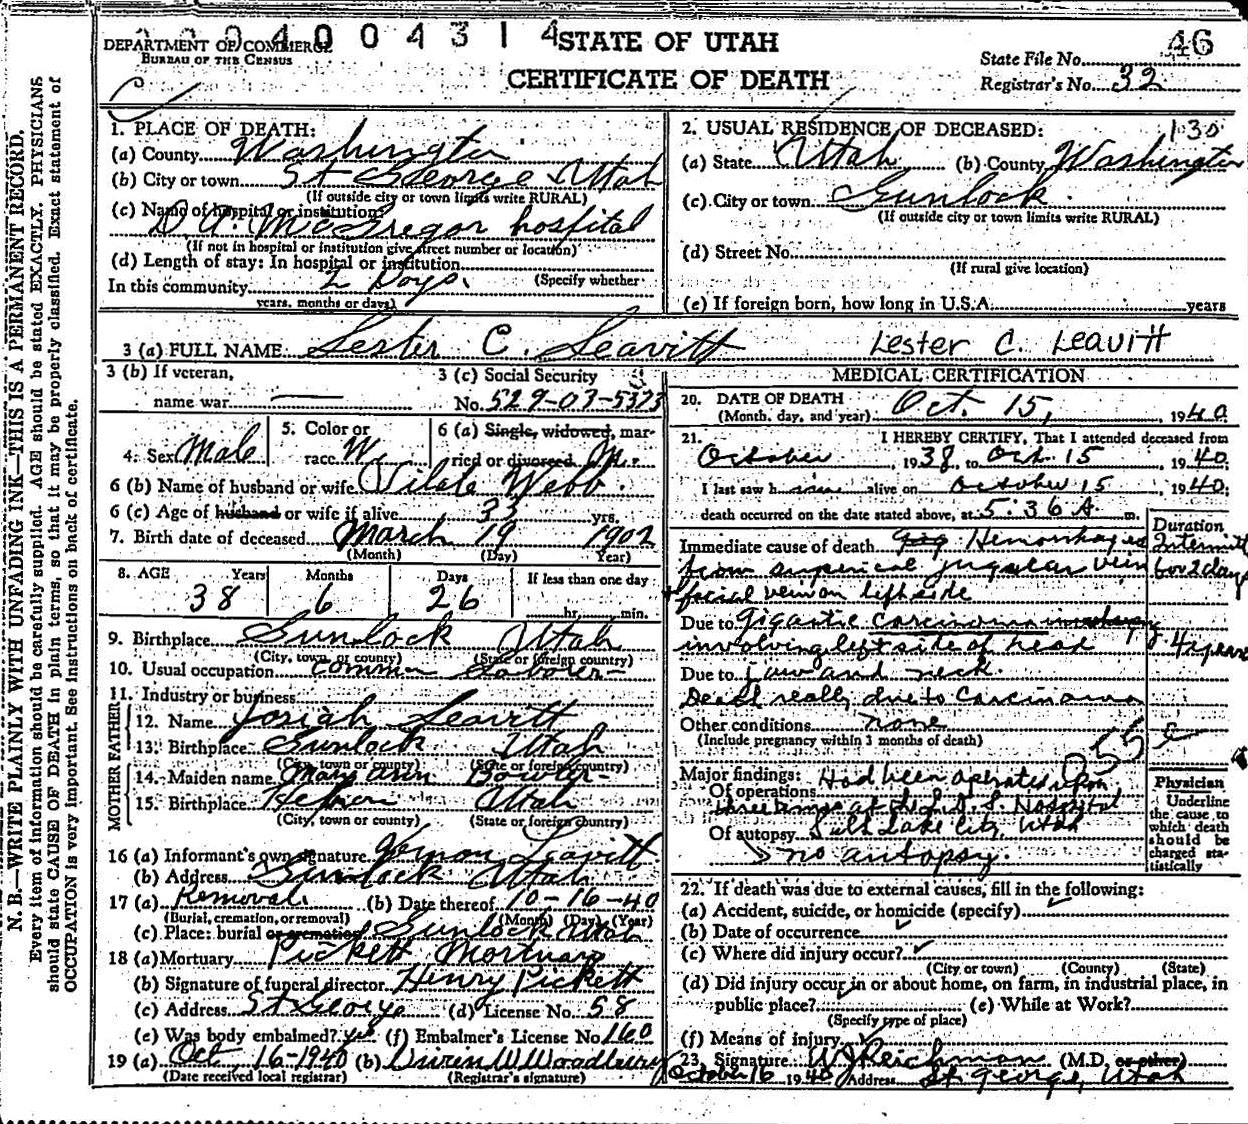 0040 04314
DEPARTMENT OF COMMERCE
BUREAU OF THE CENSUS
STATE OF UTAH
CERTIFICATE OF DEATH
46
State File No.
Registrar's No. 32
1. PLACE OF DEATH:
(a) County Washington
(b) City or town St George Utah
(If outside city or town limits write RURAL)
(c) Name of hospital or institution:
D.A. McGregor hospital
(If not in hospital or institution give street number or location)
(d) Length of stay: In hospital or institution
In this community 2 Days. (Specify whether
years, months or days)
2. USUAL RESIDENCE OF DECEASED: 130
(a) State Utah (b) County Washington
(c) City or town Gunlock
(If outside city or town limits write RURAL)
(d) Street No.
(If rural give location)
(e) If foreign born, how long in U.S.A. years
3 (a) FULL NAME Lester C. Leavitt Lester C. Leavitt
3 (b) If veteran,
name war
3 (c) Social Security
No. 529-03-5373
4. Sex Male
5. Color or
race W
6 (a) Single, widowed, mar-
ried or divorced M.
6 (b) Name of husband or wife Vilate Webb
6 (c) Age of husband or wife if alive 33 yrs.
7. Birth date of deceased March 19 1902
(Month) (Day) (Year)
8. AGE Years Months Days If less than one day
38 6 26 hr. min.
9. Birthplace Gunlock Utah
(City, town, or county) (State or foreign country)
10. Usual occupation common Laborer
11. Industry or business
FATHER
12. Name Josiah Leavitt
13. Birthplace Gunlock Utah
(City, town or county) (State or foreign country)
MOTHER
14. Maiden name Mary Ann Bowler
15. Birthplace Hebron Utah
(City, town or county) (State or foreign country)
16 (a) Informant's own signature Vernon Leavitt
(b) Address Gunlock Utah
17 (a) Removal (b) Date thereof 10-16-40
(Burial, cremation, or removal) (Month) (Day) (Year)
(c) Place: burial or cremation Gunlock Utah
18 (a) Mortuary Pickett Mortuary
(b) Signature of funeral director Henry Pickett
(c) Address St George (d) License No. 58
(e) Was body embalmed? yes (f) Embalmer's License No. 160
19 (a) Oct 16-1940 (b) W Woodbury
(Date received local registrar) (Registrar's signature)
MEDICAL CERTIFICATION
20. DATE OF DEATH
(Month, day, and year) Oct. 15, 1940
21. I HEREBY CERTIFY, That I attended deceased from
October, 1938, to Oct. 15, 1940.
I last saw h im alive on October 15, 1940;
death occurred on the date stated above, at 5:36 A. m.
Duration
Immediate cause of death Hemorrhages
from superical jugular vein
+ facial vein on left side
Intermitt
for 2 days
Due to Gigastic carcinoma
involving left side of head
4 years
Due to jaw and neck.
Death really due to Carcinoma
Other conditions none
(Include pregnancy within 3 months of death)
055 e
Major findings:
Of operations Had been operated upon
three times at L.D.S. Hospital
Of autopsy Salt Lake City, Utah
no autopsy.
Physician
Underline
the cause to
which death
should be
charged sta-
tistically
22. If death was due to external causes, fill in the following:
(a) Accident, suicide, or homicide (specify)
(b) Date of occurrence
(c) Where did injury occur?
(City or town) (County) (State)
(d) Did injury occur in or about home, on farm, in industrial place, in
public place? (e) While at Work?
(Specify type of place)
(f) Means of injury
23. Signature W J Reichman (M.D. or other)
October 16 1940 Address St. George, Utah
N. B.—WRITE PLAINLY WITH UNFADING INK—THIS IS A PERMANENT RECORD.
Every item of information should be carefully supplied. AGE should be stated EXACTLY. PHYSICIANS
should state CAUSE OF DEATH in plain terms, so that it may be properly classified. Exact statement of
OCCUPATION is very important. See instructions on back of certificate.